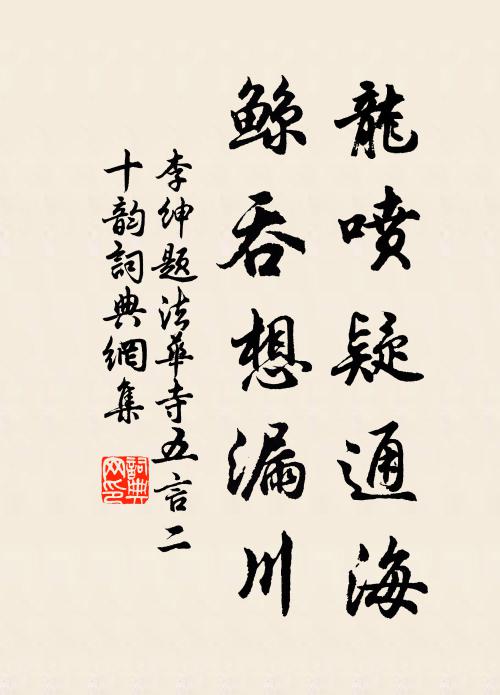 龍噴疑通海
鯨吞想漏川
李紳題法華寺五言二
十韵詞典網集
詞典
网印